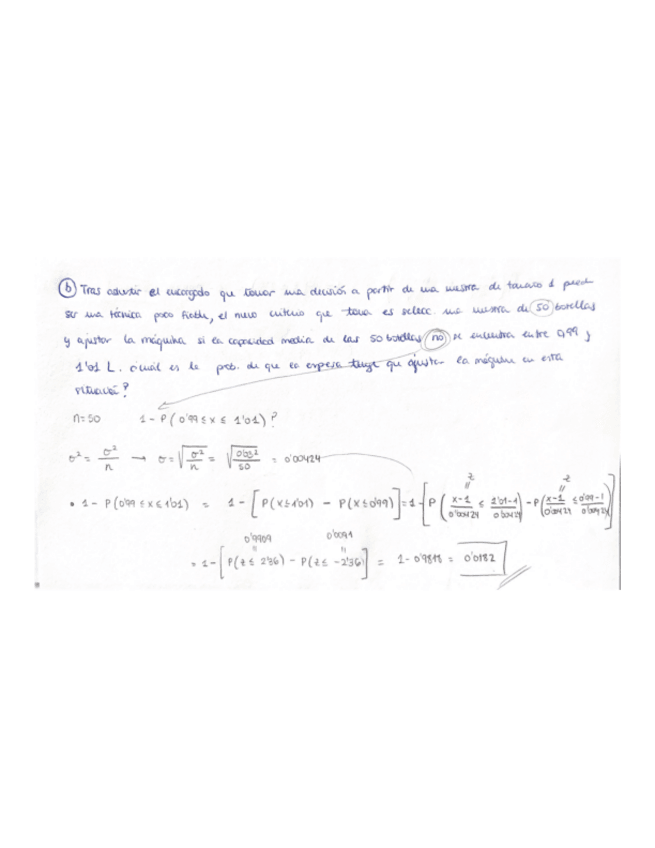 b) Tras advertir el encargado que tomar una decisión a partir de una muestra de tamaño 1 puede
ser una técnica poco fiable, el nuevo criterio que toma es selecc. una muestra de 50 botellas
y ajustar la máquina si la capacidad media de las 50 botellas no se encuentra entre 0,99 y
1'01 L. ¿cuál es la prob. de que la empresa tenga que ajustar la máquina en esta
situación?
n=50 1-P(0'99 ≤ x ≤ 1'01)?
σ² = σ²/n → σ = √(σ²/n) = √(0'03²/50) = 0'00424
• 1-P(0'99 ≤ x ≤ 1'01) = 1-[P(x≤1'01) - P(x≤0'99)] = 1-[P((x-1)/0'00424 ≤ (1'01-1)/0'00424) - P((x-1)/0'00424 ≤ (0'99-1)/0'00424)]
z z
0'9909 0'0091
= 1-[P(z ≤ 2'36) - P(z ≤ -2'36)] = 1-0'9818 = 0'0182